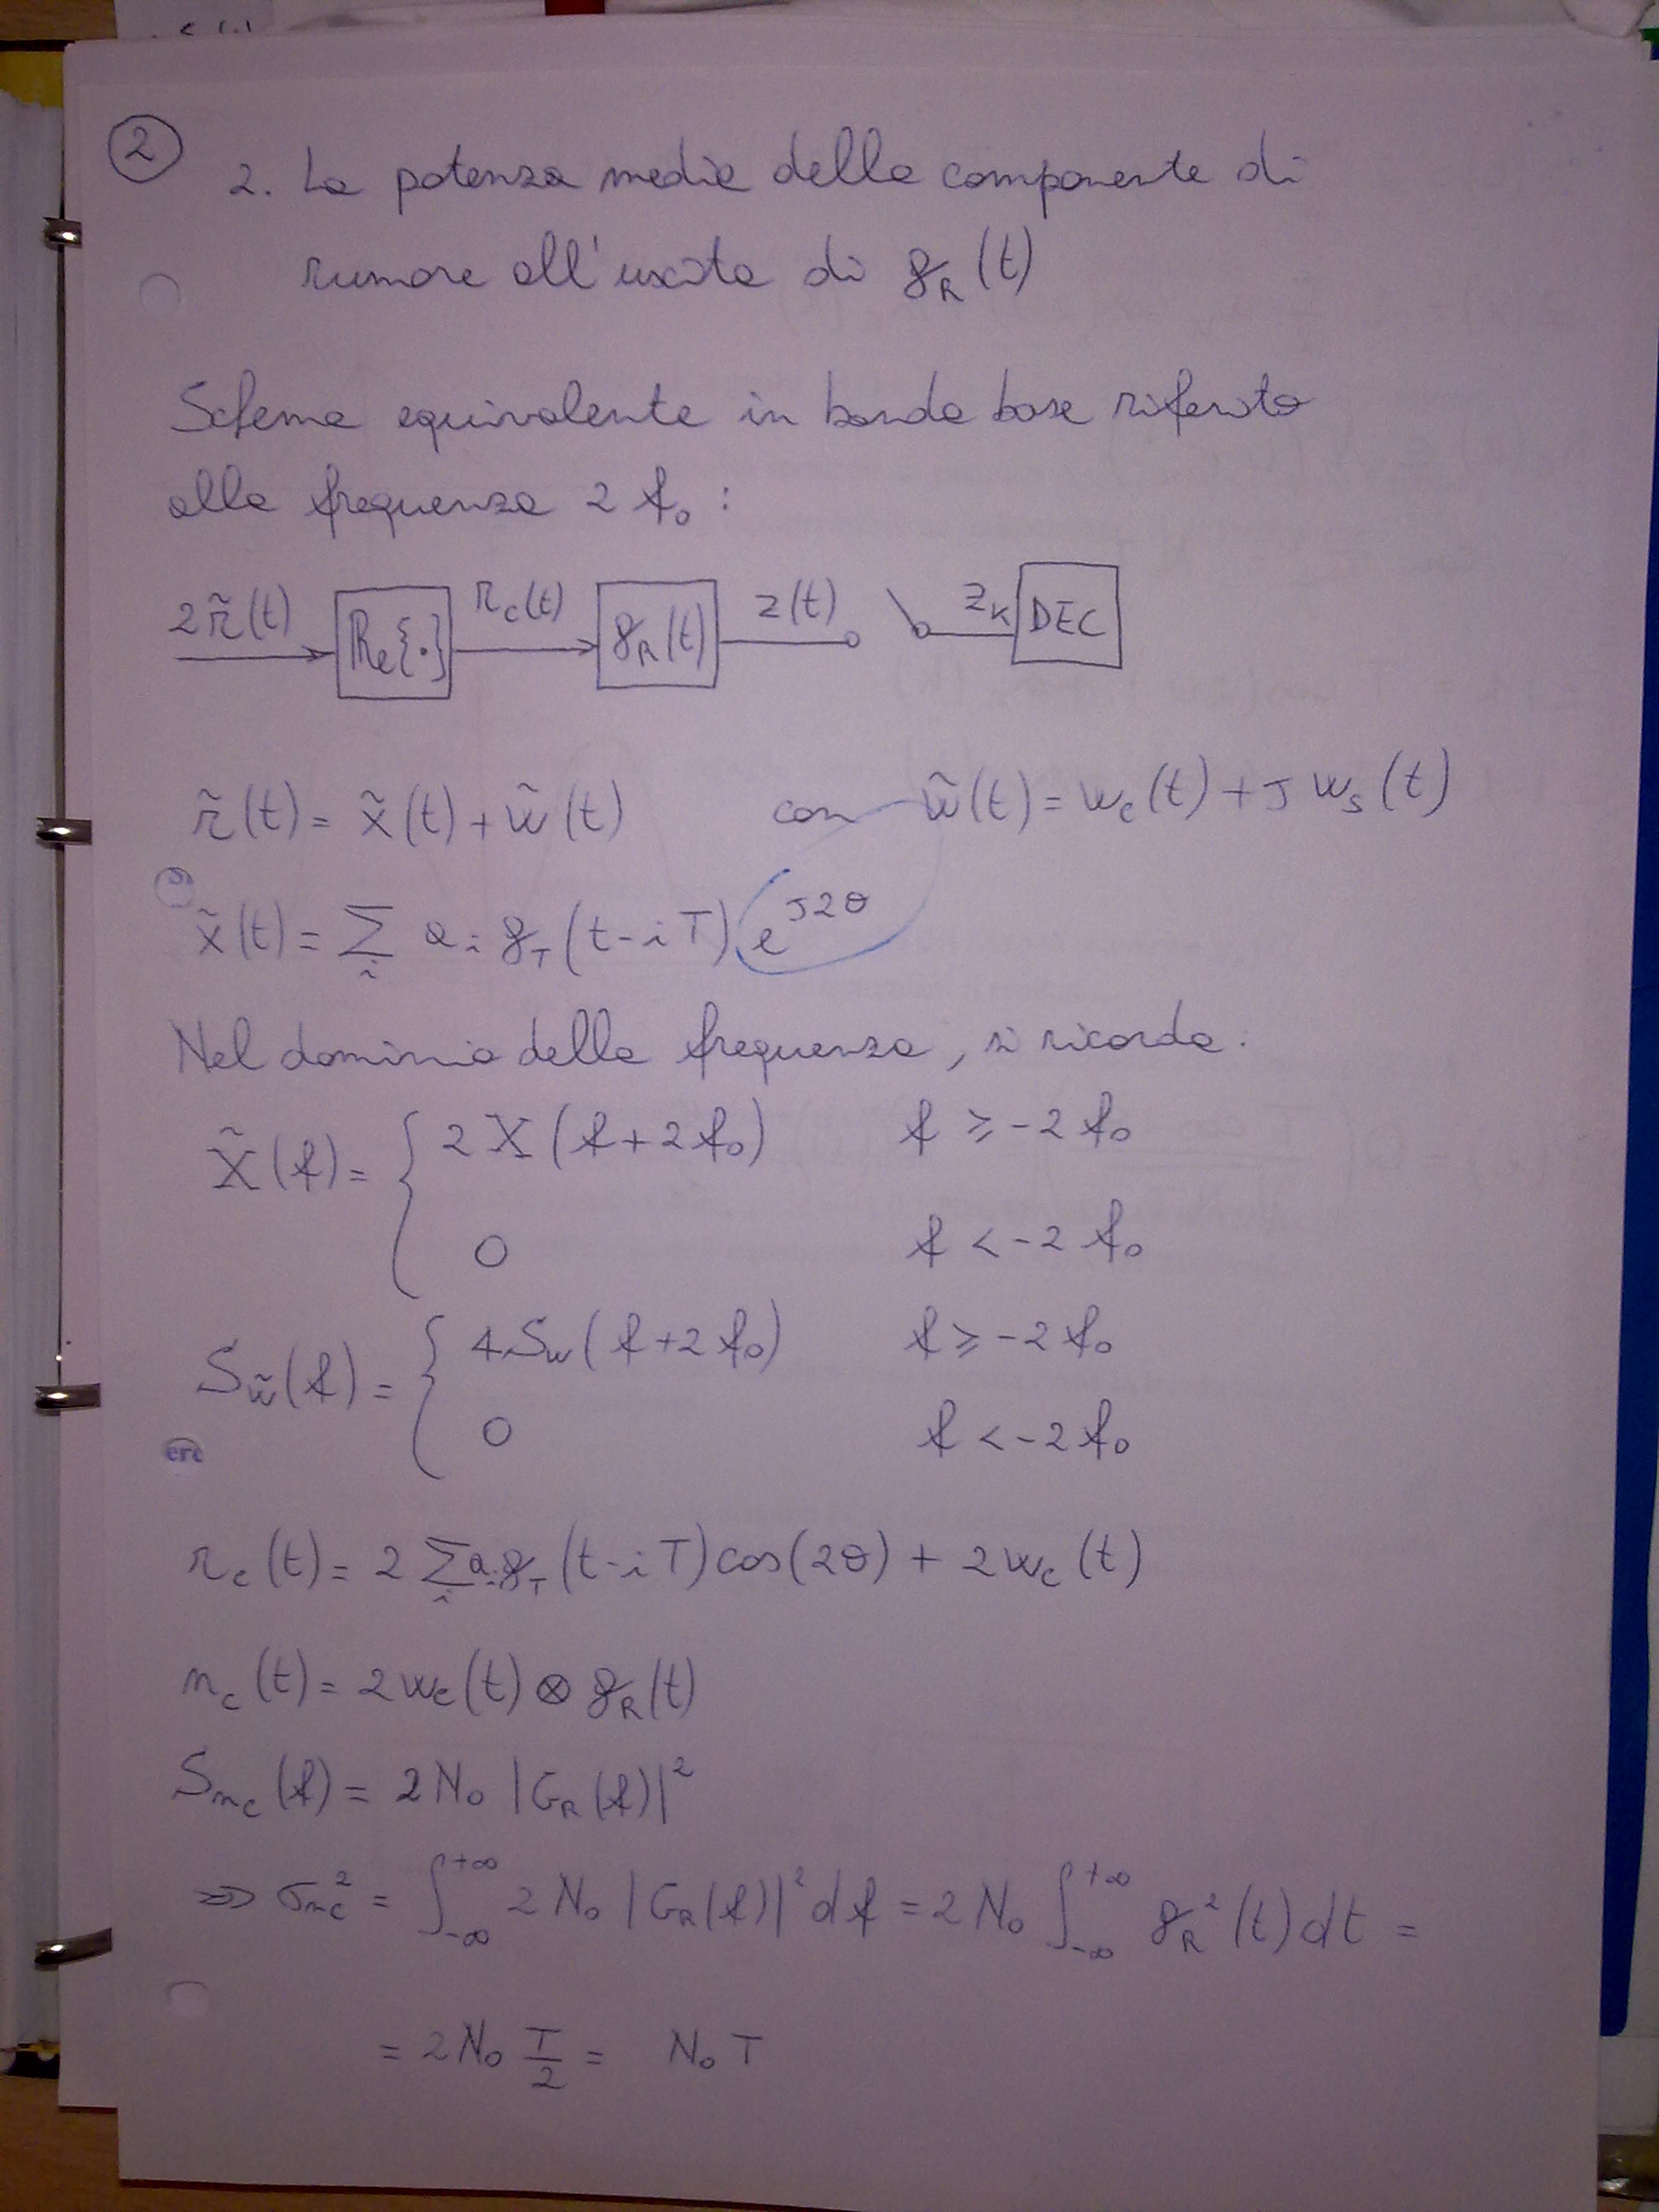 2
2. La potenza media della componente di
rumore all'uscita di g_R(t)
Schema equivalente in banda base riferito
alla frequenza 2 f₀ :
2 r̃(t) Re{·} r_c(t) g_R(t) z(t) z_k DEC
r̃(t) = x̃(t) + w̃(t) con w̃(t) = w_c(t) + J w_s(t)
x̃(t) = Σ_i a_i g_T(t-iT) e^{J2θ}
Nel dominio della frequenza, si ricorda:
X̃(f) = { 2 X(f+2f₀) f ≥ -2 f₀
0 f < -2 f₀
S_w̃(f) = { 4 S_w(f+2f₀) f ≥ -2 f₀
0 f < -2 f₀
erc
r_c(t) = 2 Σ_i a_i g_T(t-iT) cos(2θ) + 2 w_c(t)
n_c(t) = 2 w_c(t) ⊗ g_R(t)
S_{n_c}(f) = 2 N₀ |G_R(f)|²
⇒ σ_{n_c}² = ∫_{-∞}^{+∞} 2 N₀ |G_R(f)|² df = 2 N₀ ∫_{-∞}^{+∞} g_R²(t) dt =
= 2 N₀ T/2 = N₀ T